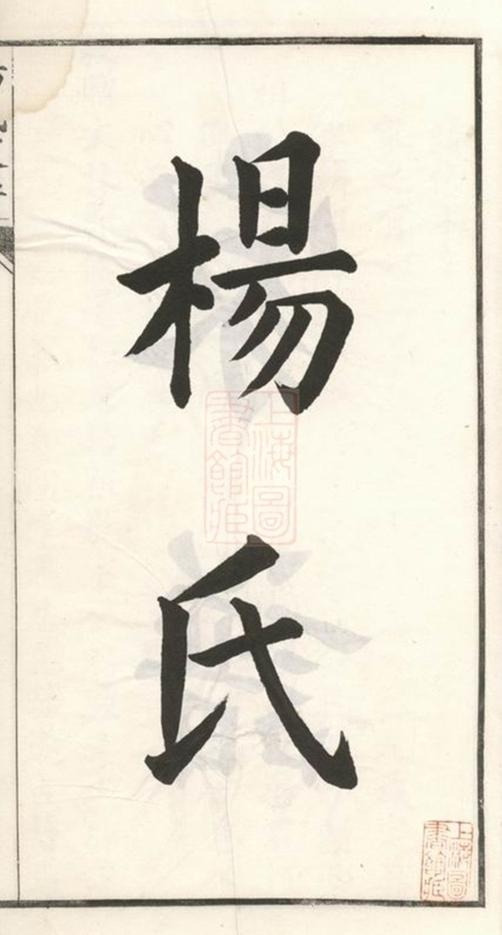 楊氏
上海圖書館藏
上海圖書館藏